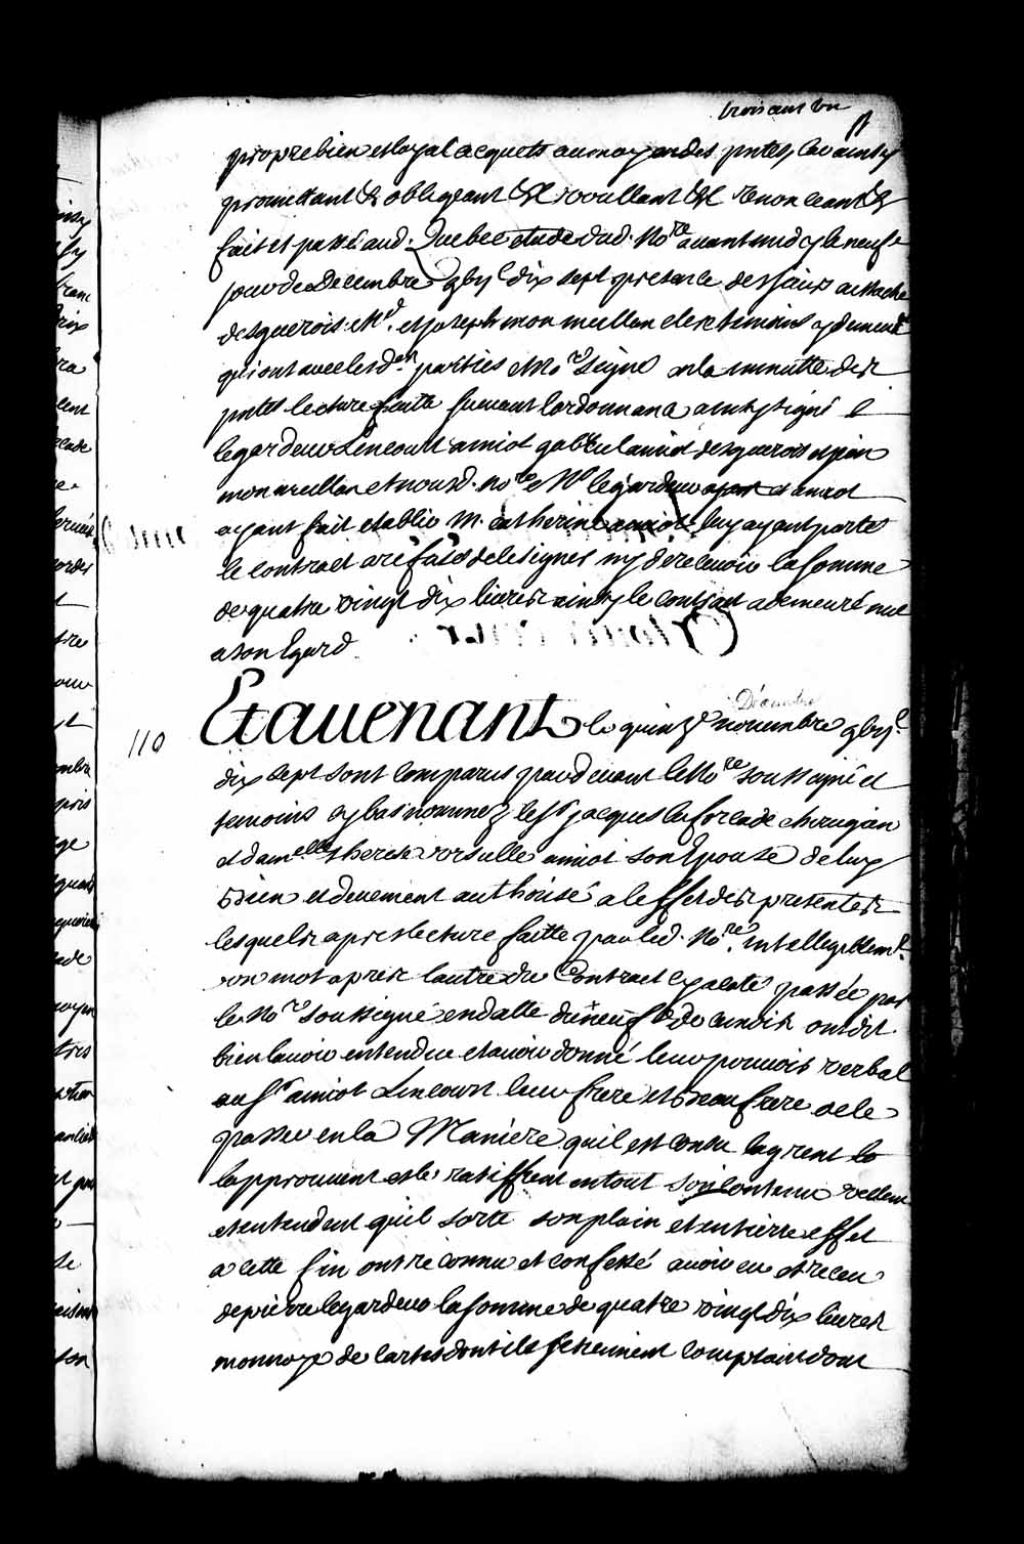 trois cent un
propre bien et loyal acquets au moyen des pntes, Car ainsy
promettant &c obligeant &c voullant &c renonceant &c
fait et passé aud. Quebec etude dud. Nore avant midy le neufe
jour de Decembre gby c dix sept presence des Sieurs eustache
desguerois Md. et joseph monmeillan clerc temoins y demeurt
qui ont avec lesd. parties et Nore signé en la minutte des
pntes lecture faite suivant lordonnance ainsy signé
legardeur Lincourt amiot gabriel amiot desguerois
monmeillan et nousd. nore Mr legardeur et amiot
ayant fait etablir M. catherine amiot luy ayant porté
le contract a refusé de le signer ny de recevoir la somme
de quatre vingt dix livres ainsy le contract a demeuré nul
a son Egard
110
Et avenant le quinze novembre Décembre gby c
dix sept sont comparus pardevant le Nore soussigné et
temoins cy bas nommez le sr jacques laforcade chirugien
et damelle therese ursulle amiot son Epouse de luy
bien et deuement authorisé a leffet des presentes
lesquels apres lecture faitte par led. Nore. intelligiblemt.
un mot apres lautre du Contract cy a coté passée par
le Nore soussigné en datte du neuf de ce mois ont dit
bien lavoir entendue et avoir donné leur pouvoir verbal
au sr amiot Lincourt leur frere et beaufrere de le
passer en la Maniere quil est consu lagreent
lapprouvent et le ratiffient en tout son contenu veullent
et entendent quil sorte son plain et entierre effet
a cette fin ont reconnu et confessé avoir eu et receu
de pierre legardeur la somme de quatre vingt dix livres
monnoye de cartes dont ils se tiennent comptant dont